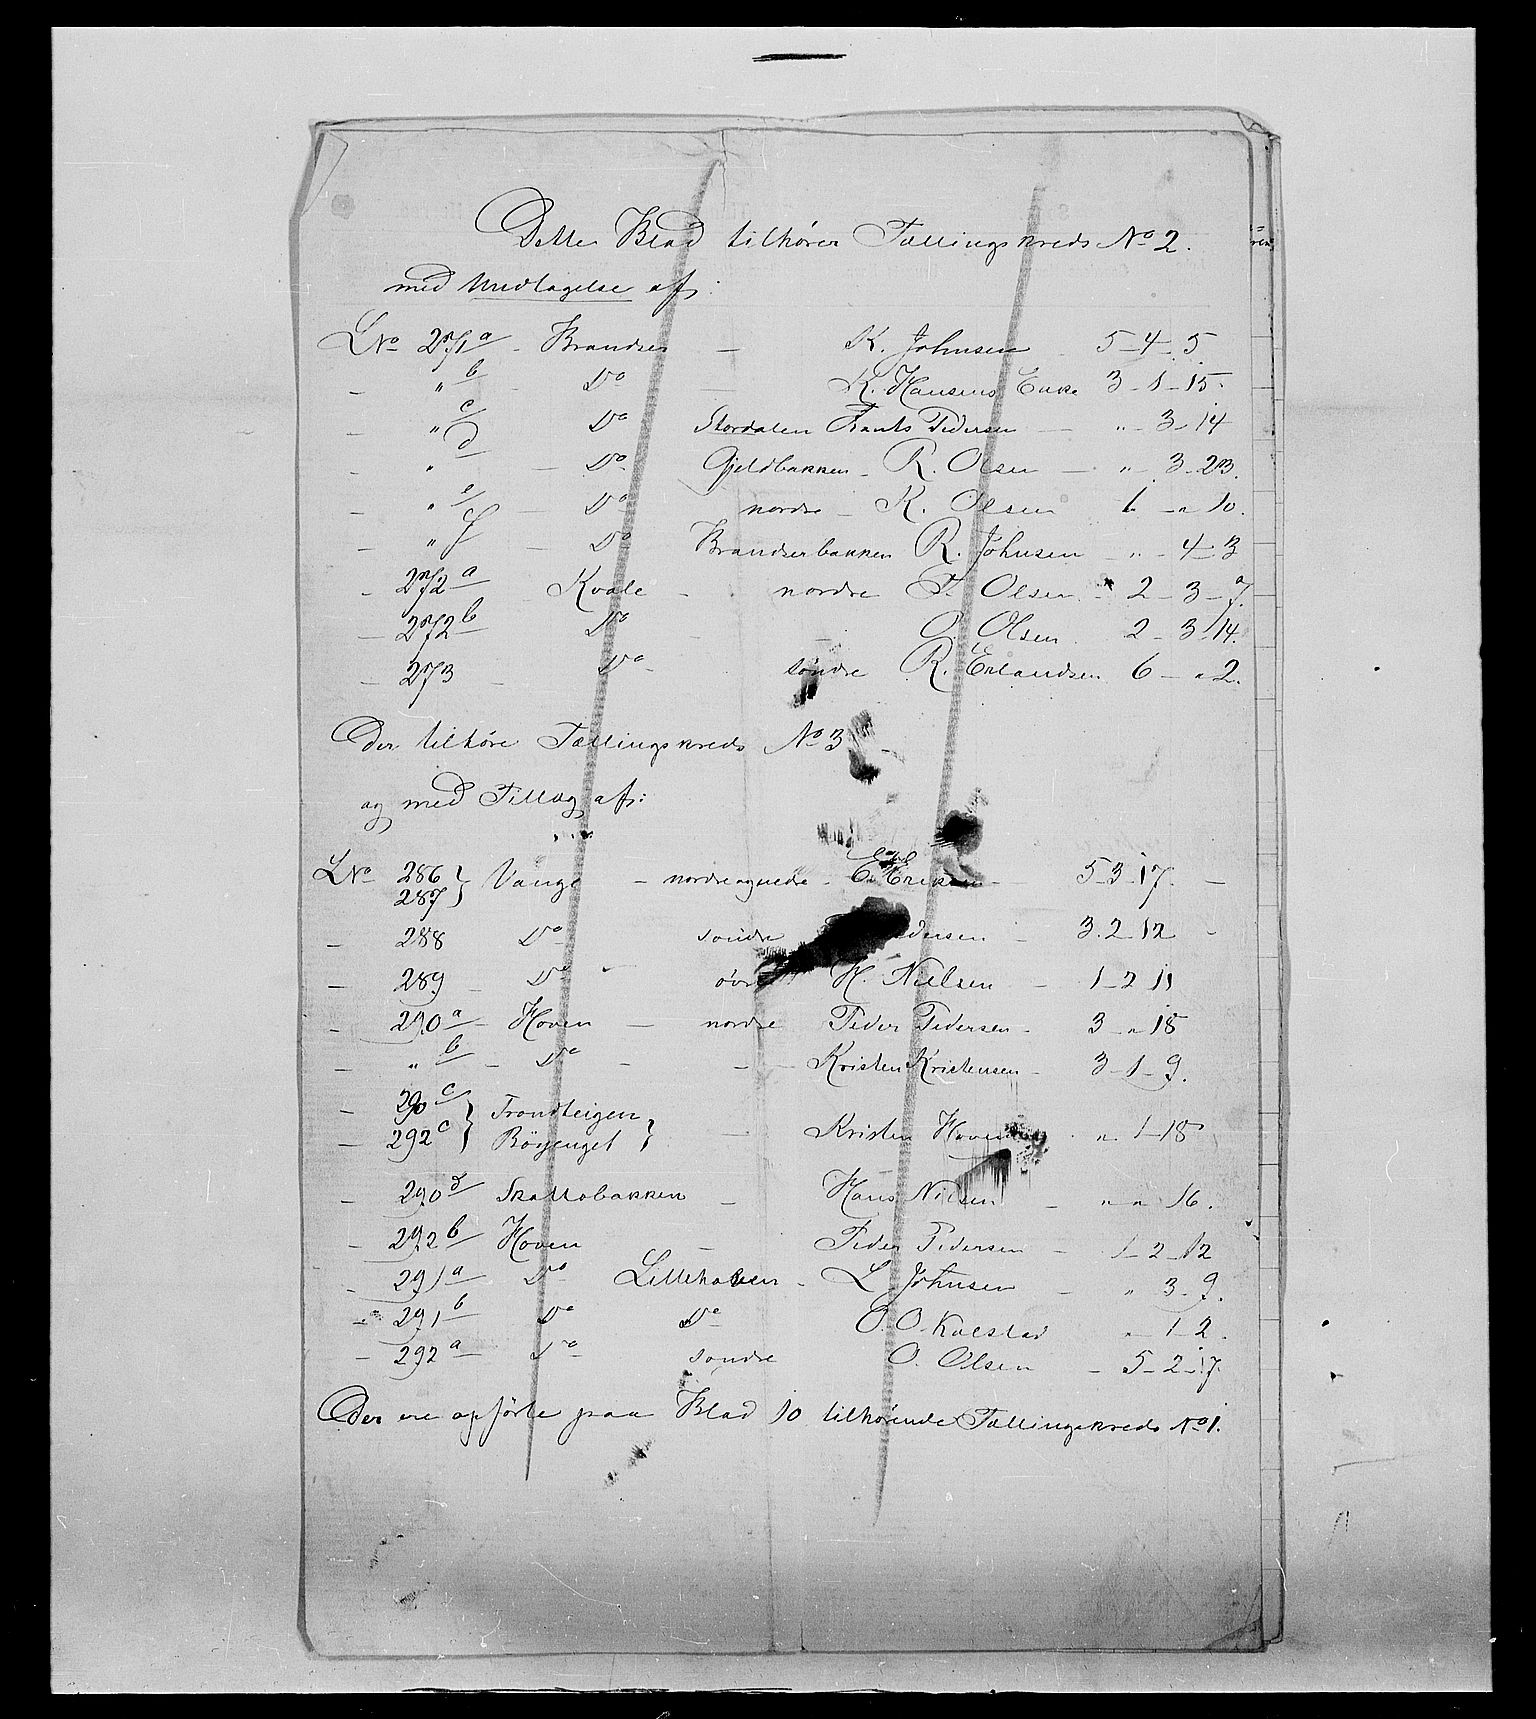 Dette Blad tilhører Tællingskreds No 2.
med Undtagelse af:
LNo 271a - Brandser - K. Johnsen 5-4-5
- " b - Do - K. Hansens Enke 3-1-15
- " c Do Stordalen Pedersen - " 3-14
- " d - Do Gjeldbakken - R. Olsen - " 3-23.
- " e Do nordre - K. Olsen 1 - " 10.
- " f - Do Brandserbakken R. Johnsen - " - 4-3
- 272a Kvale - nordre T. Olsen 2-3-7.
- 272b Do - Olsen 2-3-14.
- 273 - Do søndre R. Erlandsen 6 - " 2.
Der tilhøre Tællingskreds No 3
og med Tillæg af:
LNo 286 } Vange - nordre og nedre - E. 5-3-17. -
287 }
- 288 Do søndre 3.2.12 -
- 289 - Do øvre H. Nielsen - 1-2-11
- 290a - Hoven - nordre Peder Pedersen - 3 - " 18
- " b - Do - - Kristen Kristensen - 3-1-9.
- 290c } Trondteigen }
- 292c } Böyenget } - Kristen Hoven " 1-18
- 290d Skattobakken - Hans Nilsen - " " 16.
- 292b Hoven - Peder Pedersen - 1-2-12
- 291a Do Lillehoven - L. Johnsen - " 3-9.
- 291b Do Do O. O. Kolstad " 1-2.
- 292a - Do søndre O. Olsen - 5-2-17.
Der ere opførte paa Blad 10 tilhørende Tællingskreds No 1.